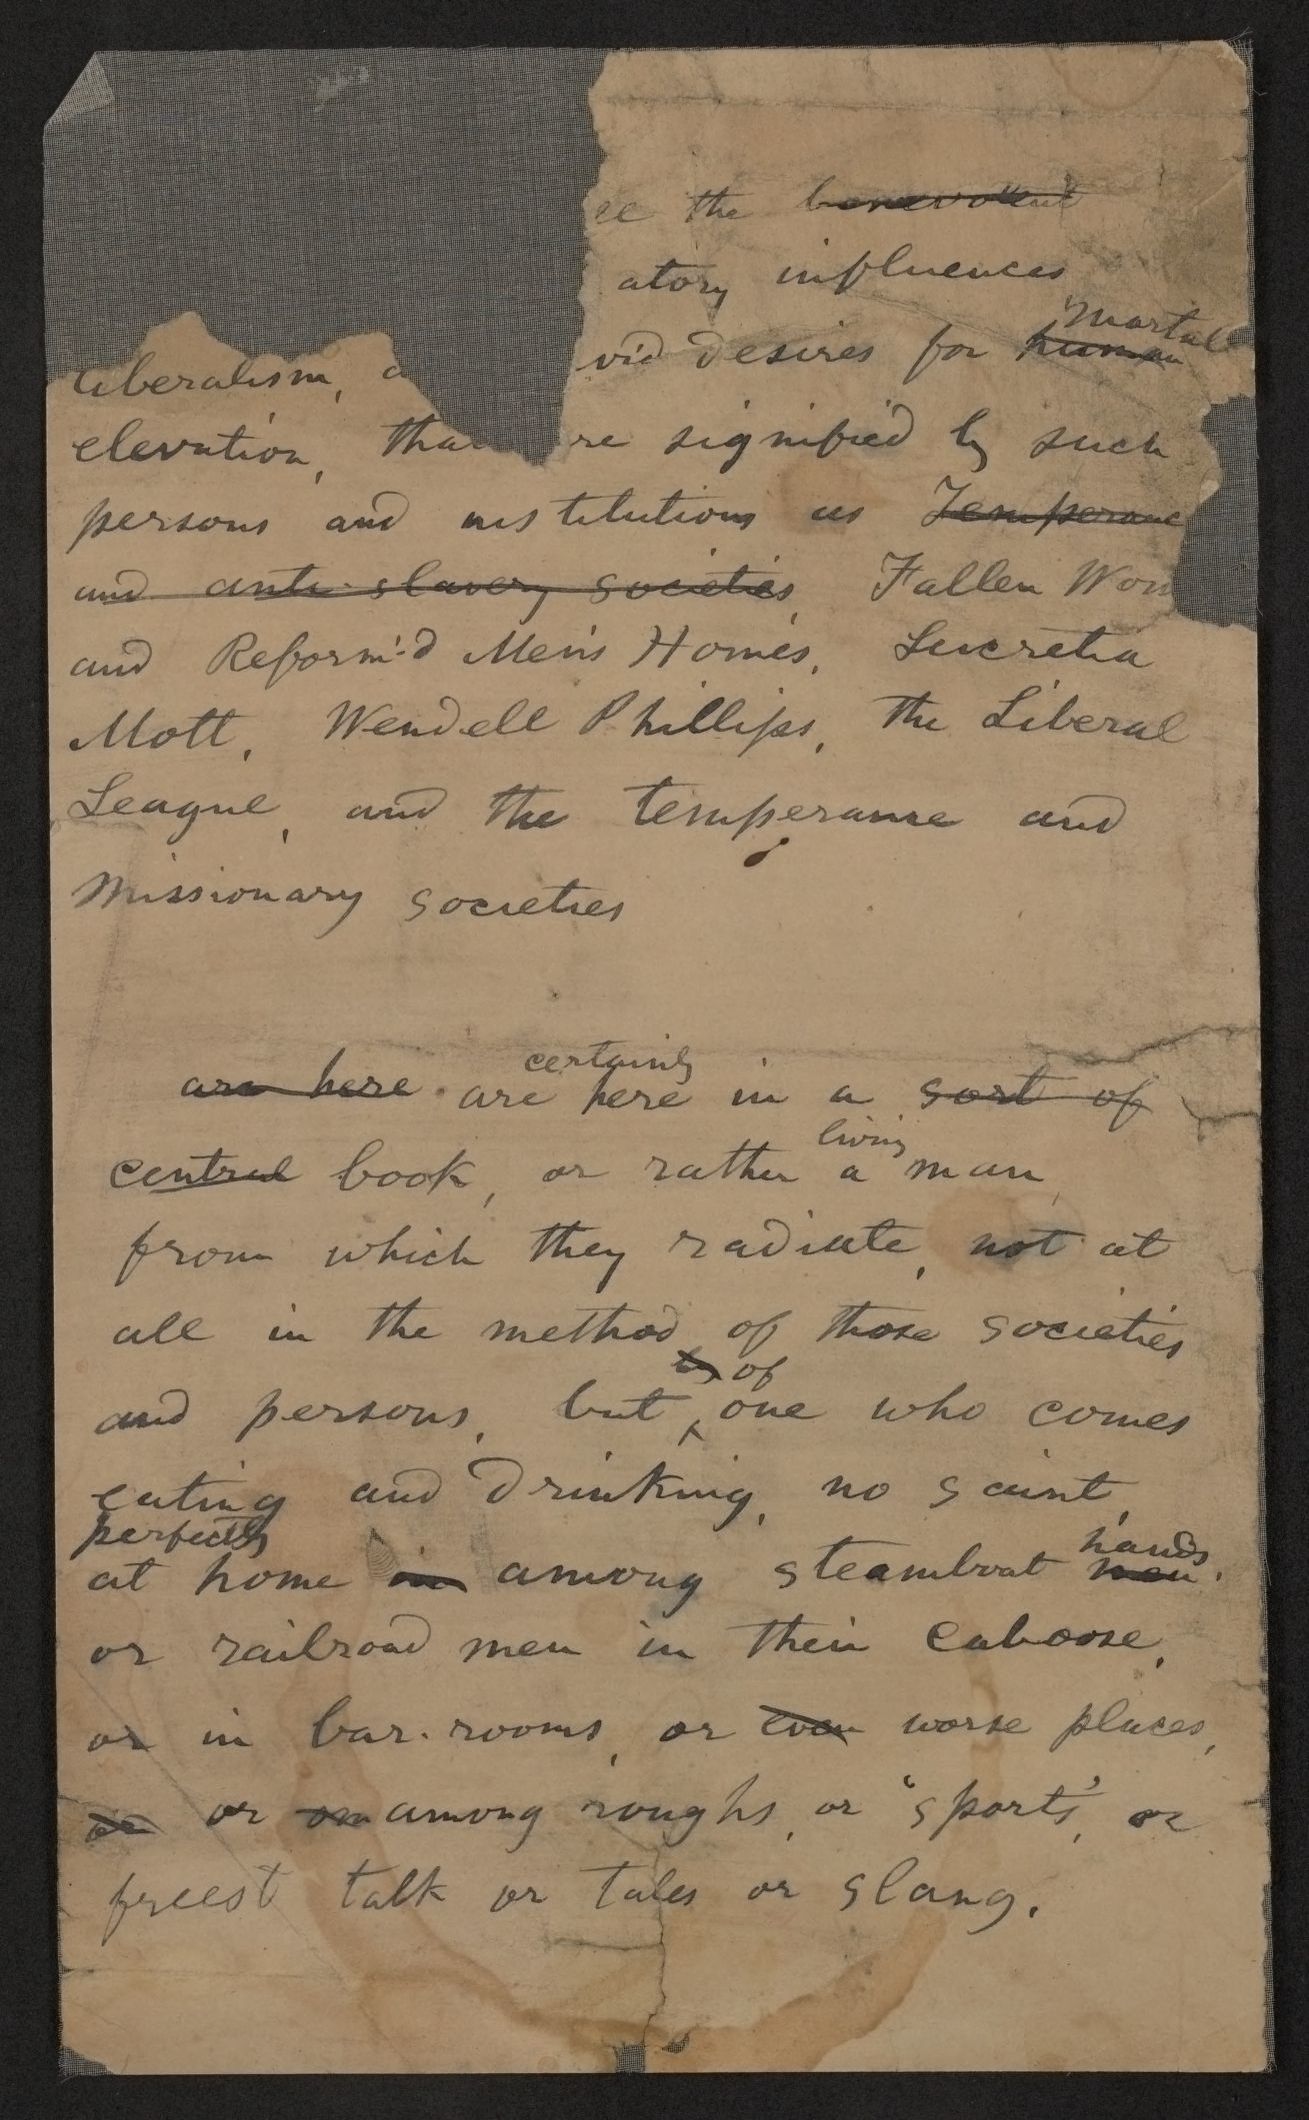 the benevolent
atory influences
mortal
liberalism, a vid desires for human
elevation, that re signified by such
persons and institutions as Temperanc
and anti-slavery societies, Fallen Wom
and Reform'd Men's Homes, Lucretia
Mott, Wendell Phillips, the Liberal
League, and the temperance and
missionary societies
certainly
are here are here in a sort of
living
central book, or rather a man,
from which they radiate, not at
all in the method of those societies
by of
and persons, but ‸ one who comes
eating and drinking, no saint,
perfectly hands
at home in among steamboat men.
or railroad men in their caboose,
or in bar-rooms, or even worse places,
or or among roughs, or "sports", or
freest talk or tales or slang.